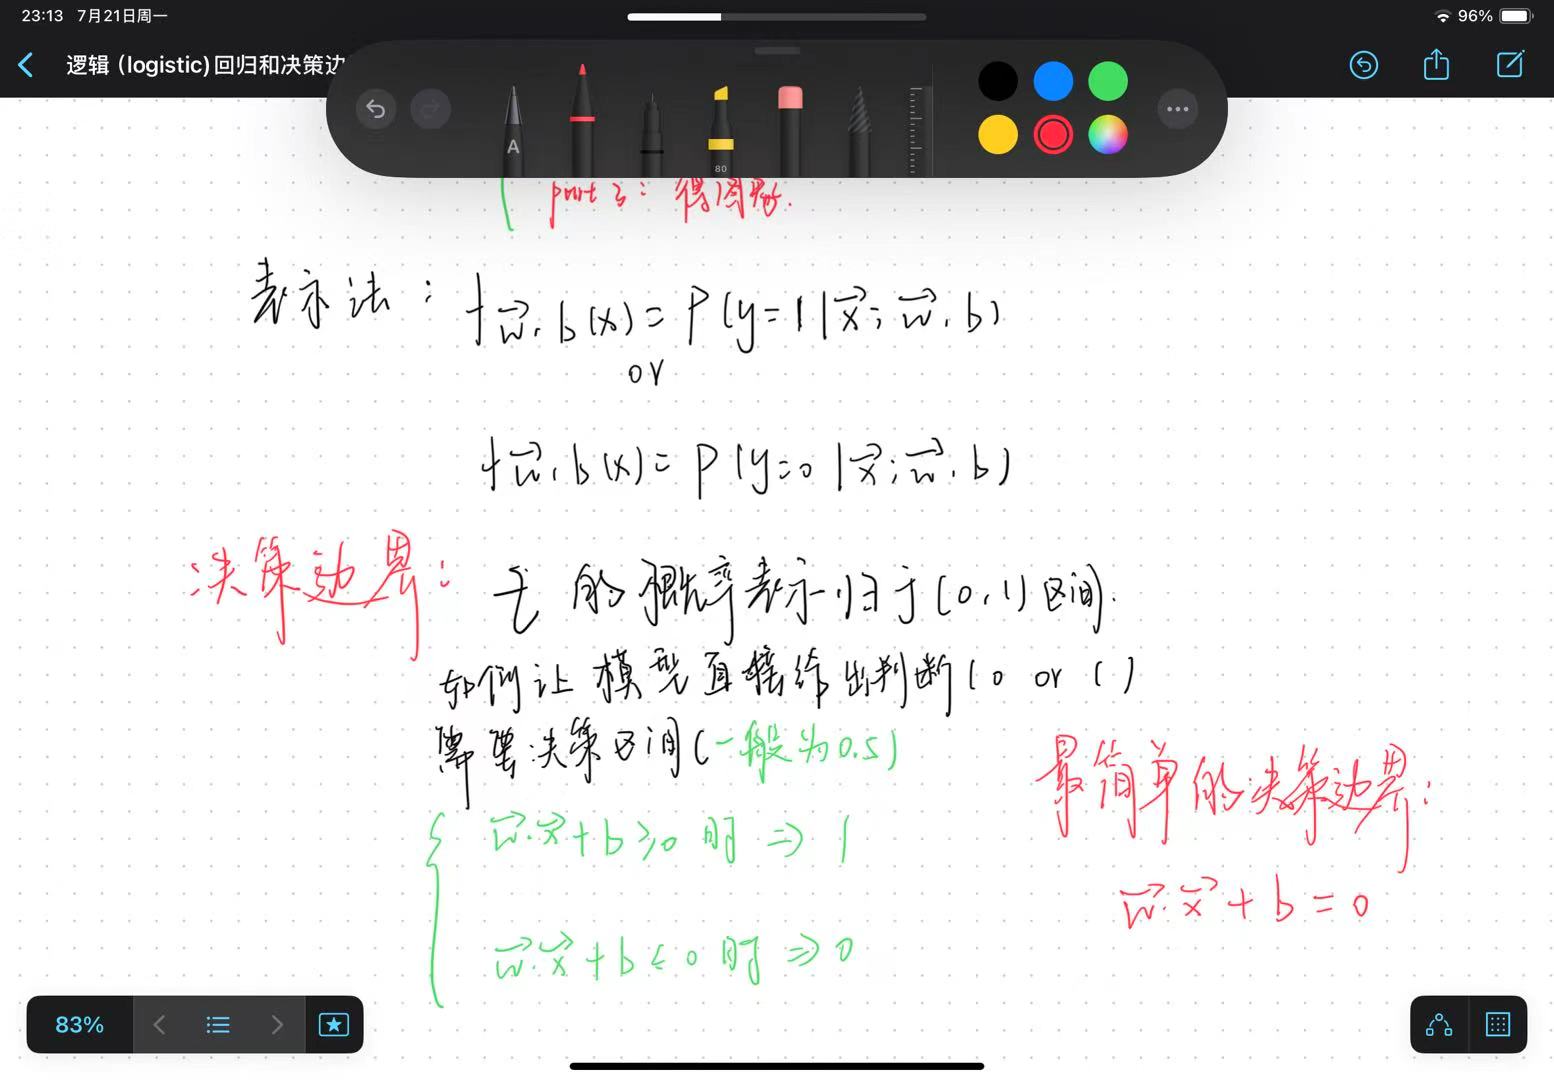 23:13 7月21日周一
96%
逻辑 (logistic) 回归和决策边
A
80
part 3: 得图形.
表示法: f w⃗, b (x) = P (y=1 | x⃗; w⃗, b)
or
f w⃗, b (x) = P (y=0 | x⃗; w⃗, b)
决策边界: 的概率表示归于 (0,1) 区间.
如何让模型直接给出判断 (0 or 1)
需要决策区间 (一般为0.5)
最简单的决策边界:
w⃗·x⃗ + b ≥ 0 时 ⇒ 1
w⃗·x⃗ + b = 0
w⃗·x⃗ + b < 0 时 ⇒ 0
83%